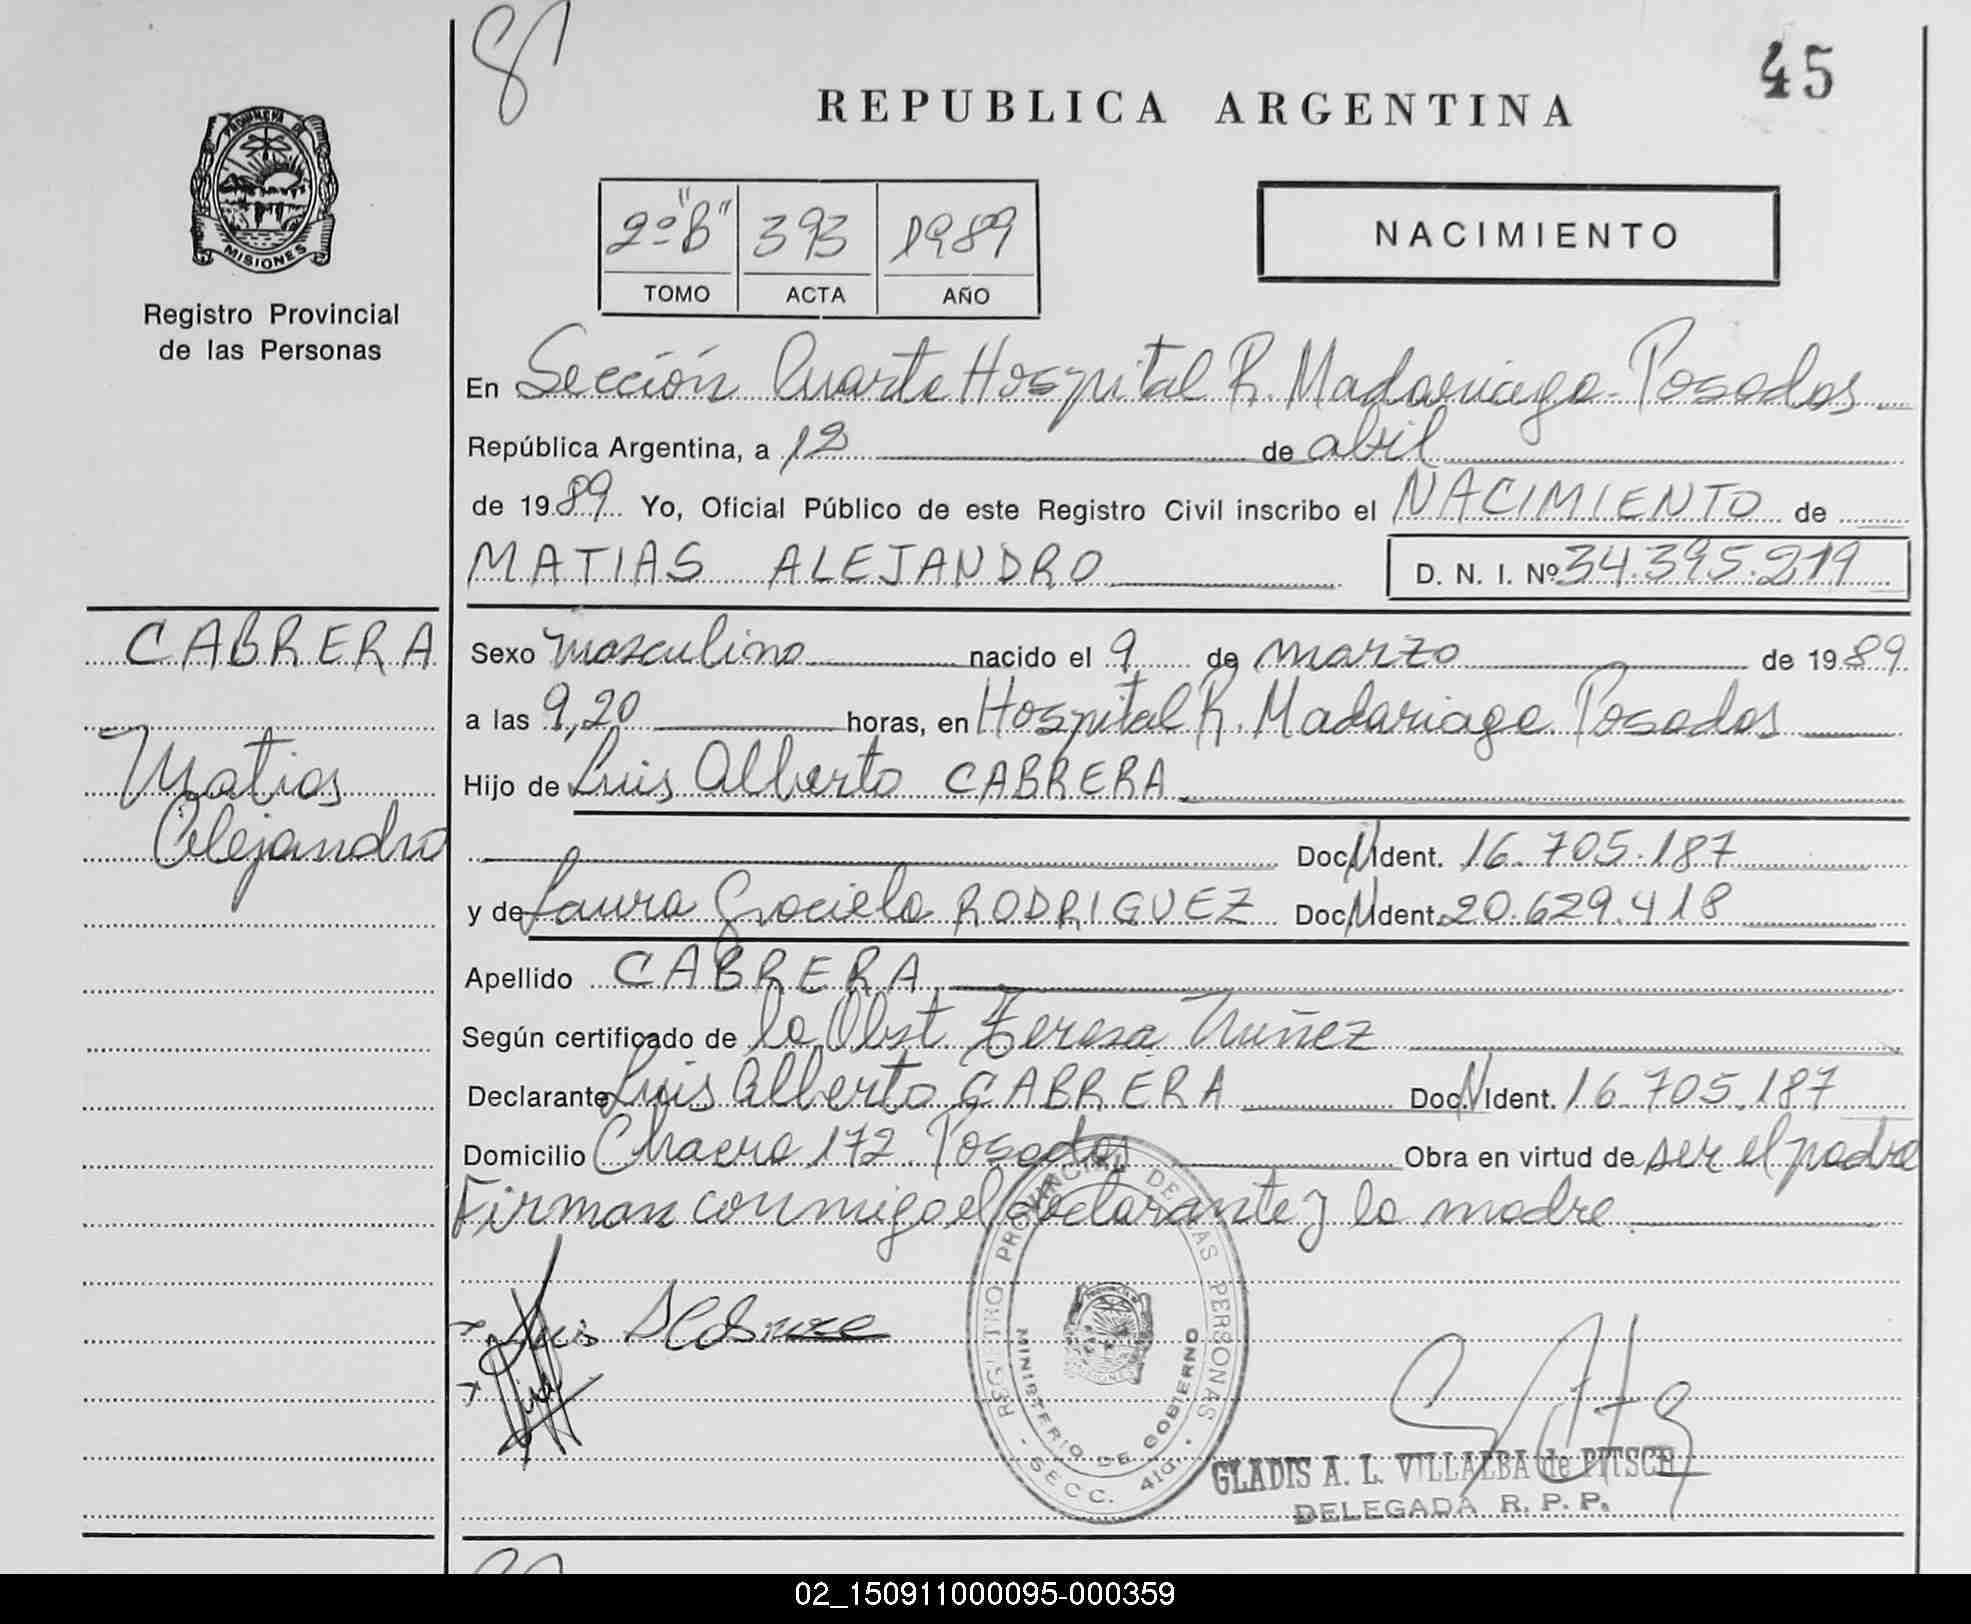 45
REPUBLICA ARGENTINA
PROVINCIA DE
MISIONES
Registro Provincial
de las Personas
2º "B" 393 1989
TOMO ACTA AÑO
NACIMIENTO
En Sección Cuarta Hospital R. Madariaga - Posadas
República Argentina, a 12 de abril
de 1989 Yo, Oficial Público de este Registro Civil inscribo el NACIMIENTO de
MATIAS ALEJANDRO D. N. I. Nº 34.395.219
CABRERA
Matias
Alejandro
Sexo masculino nacido el 9 de marzo de 1989
a las 9,20 horas, en Hospital R. Madariaga. Posadas
Hijo de Luis Alberto CABRERA
Doc. N Ident. 16.705.187
y de Laura Graciela RODRIGUEZ Doc. N Ident. 20.629.418
Apellido CABRERA
Según certificado de la Obst Teresa Nuñez
Declarante Luis Alberto CABRERA Doc. N Ident. 16.705.187
Domicilio Chacra 172. Posadas Obra en virtud de ser el padre
Firman conmigo el declarante y la madre.
Luis
REGISTRO PROVINCIAL DE LAS PERSONAS
MINISTERIO DE GOBIERNO
- SECC. 4ta. -
GLADIS A. L. VILLALBA de PITSCH
DELEGADA R. P. P.
02_150911000095-000359